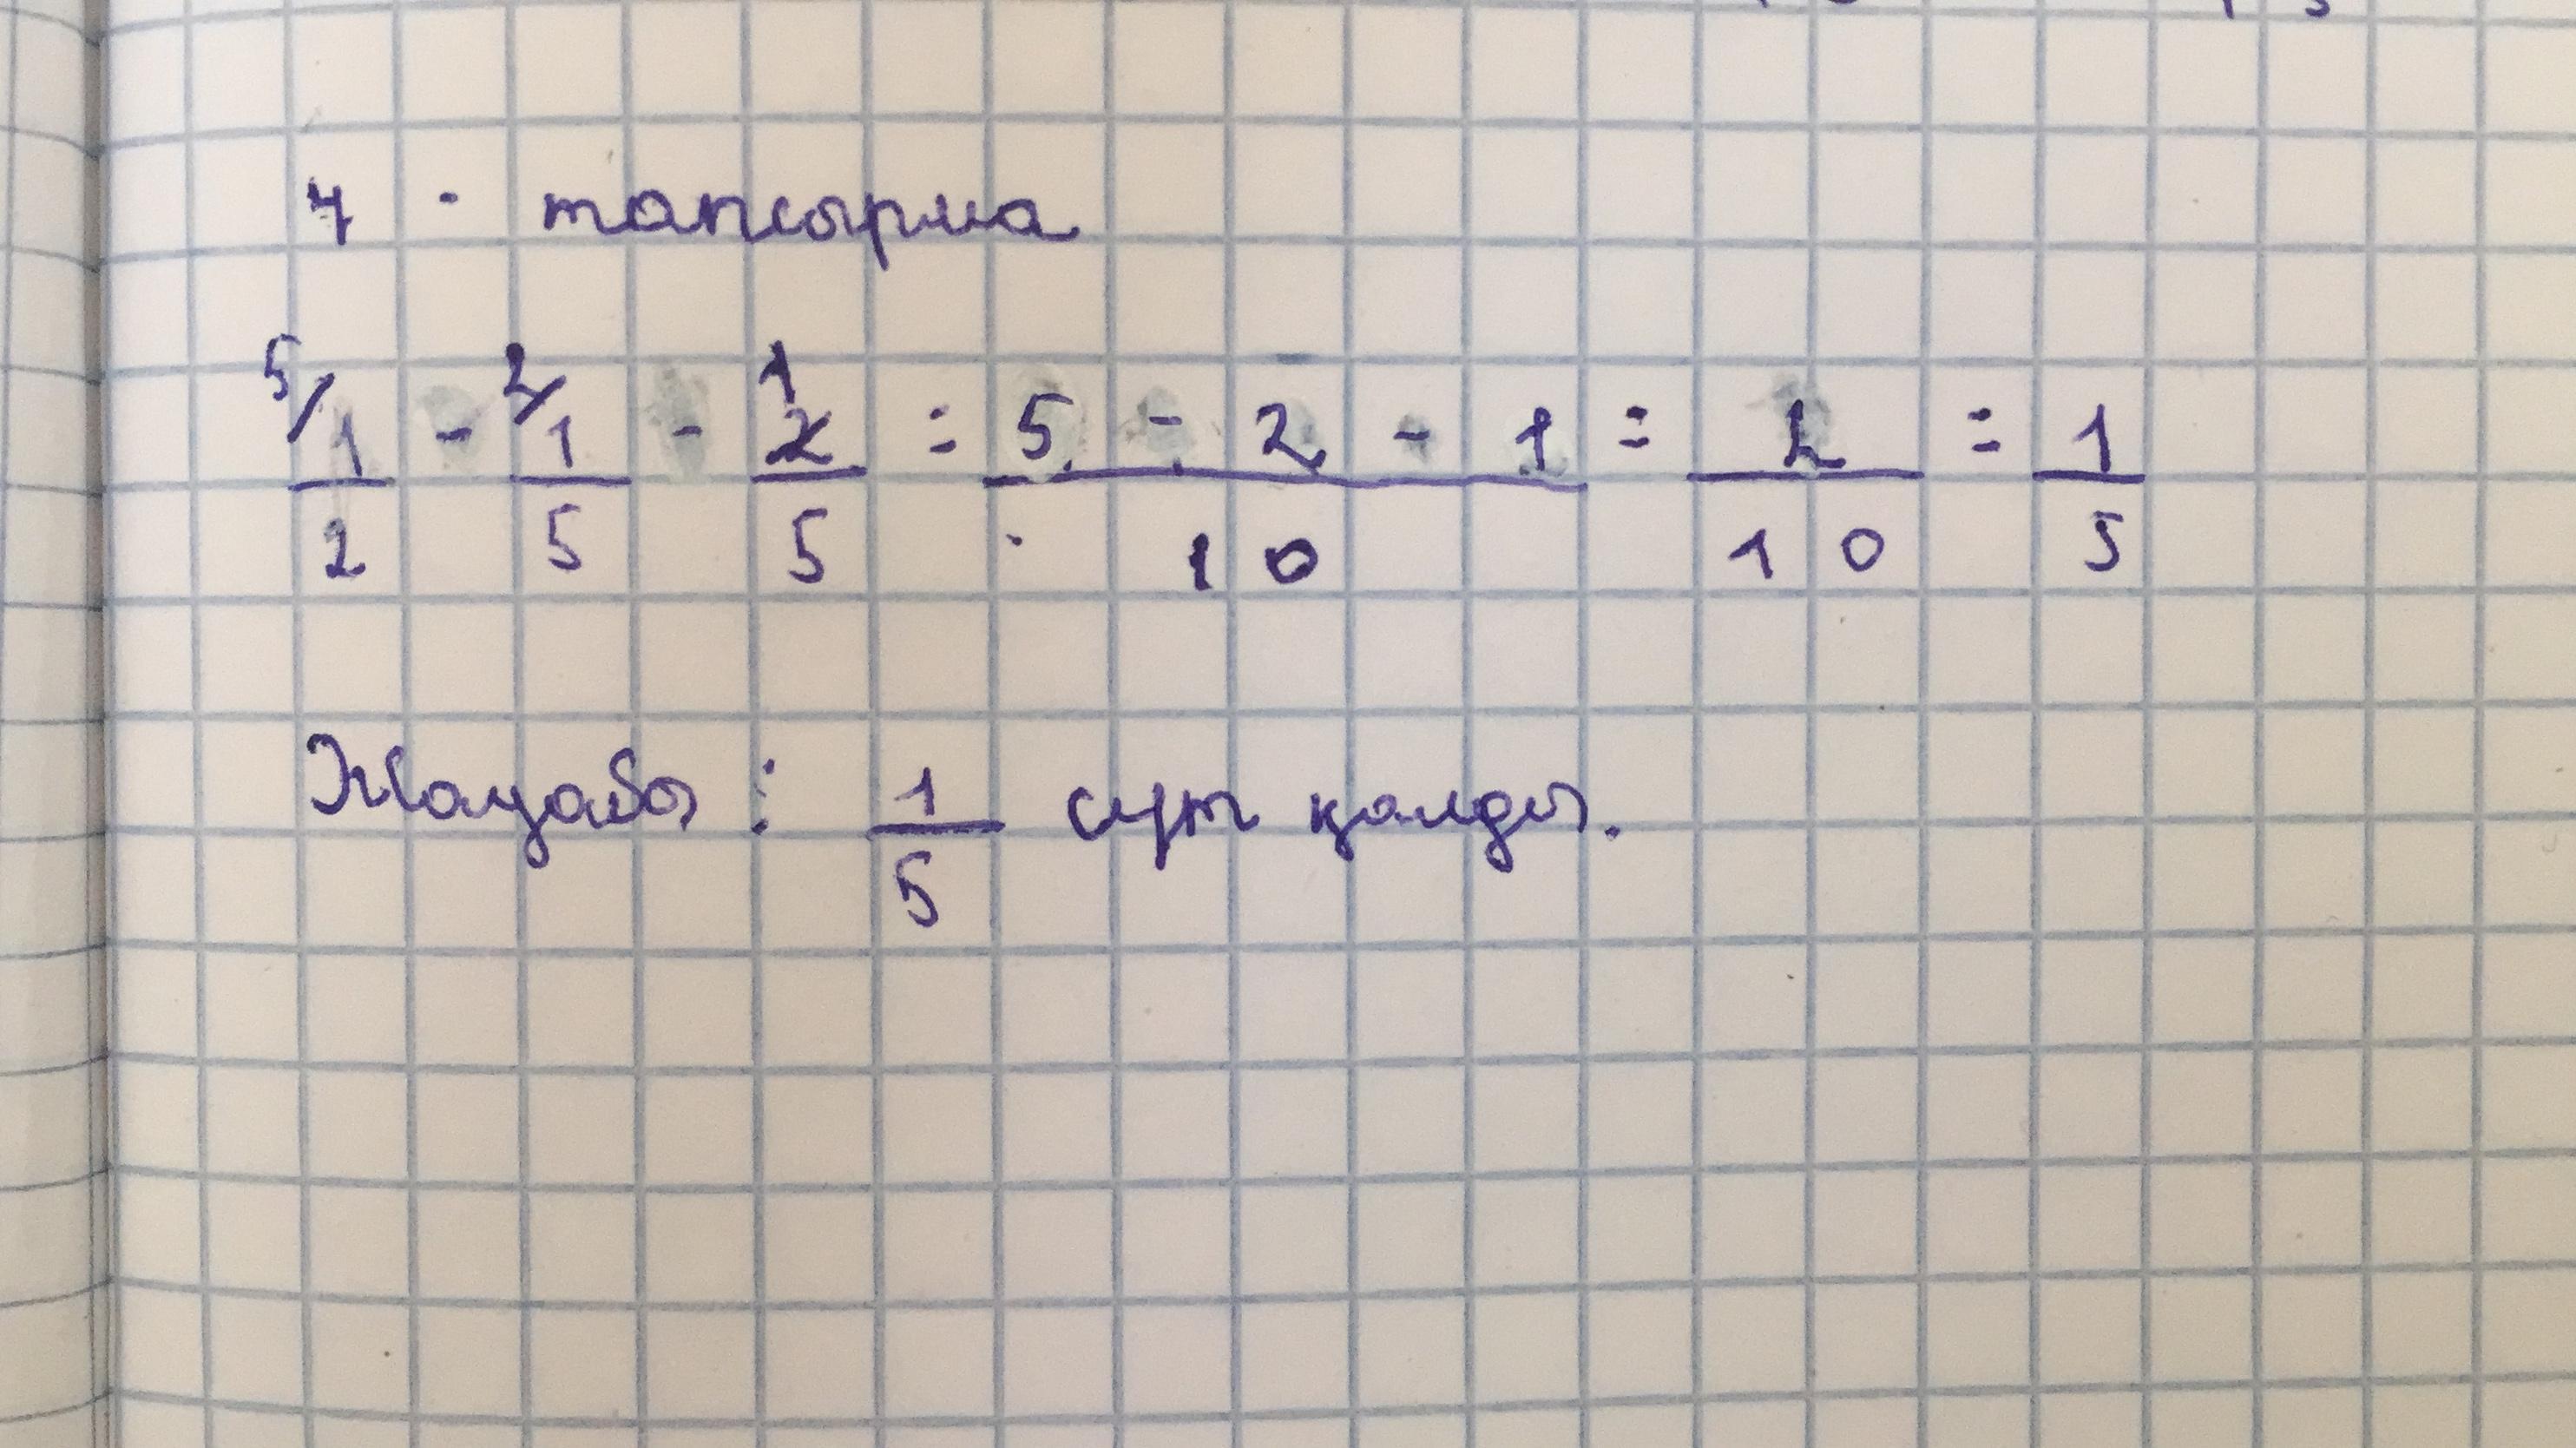 4 - тапсырма
5/1/2 - 2/1/5 - 1 2/5 = 5 - 2 - 1/10 = 2/10 = 1/5
Жауабы : 1/5 сүт қалды.